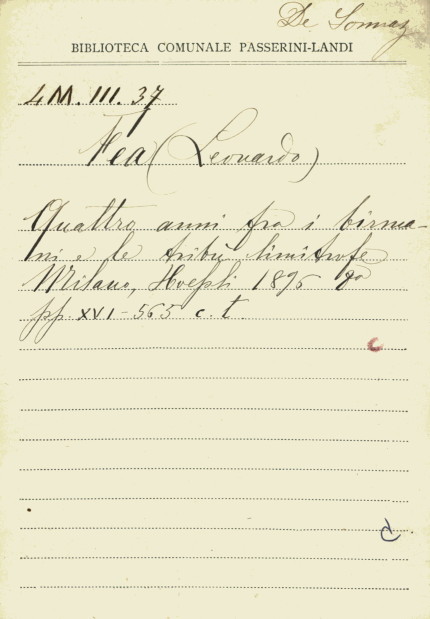 De Sonnaz
BIBLIOTECA COMUNALE PASSERINI-LANDI
4M. III. 37
Fea (Leonardo)
Quattro anni fra i birma-
ni e le tribù limitrofe
Milano, Hoepli 1896 8º
pp. XVI-565 c. t.
C